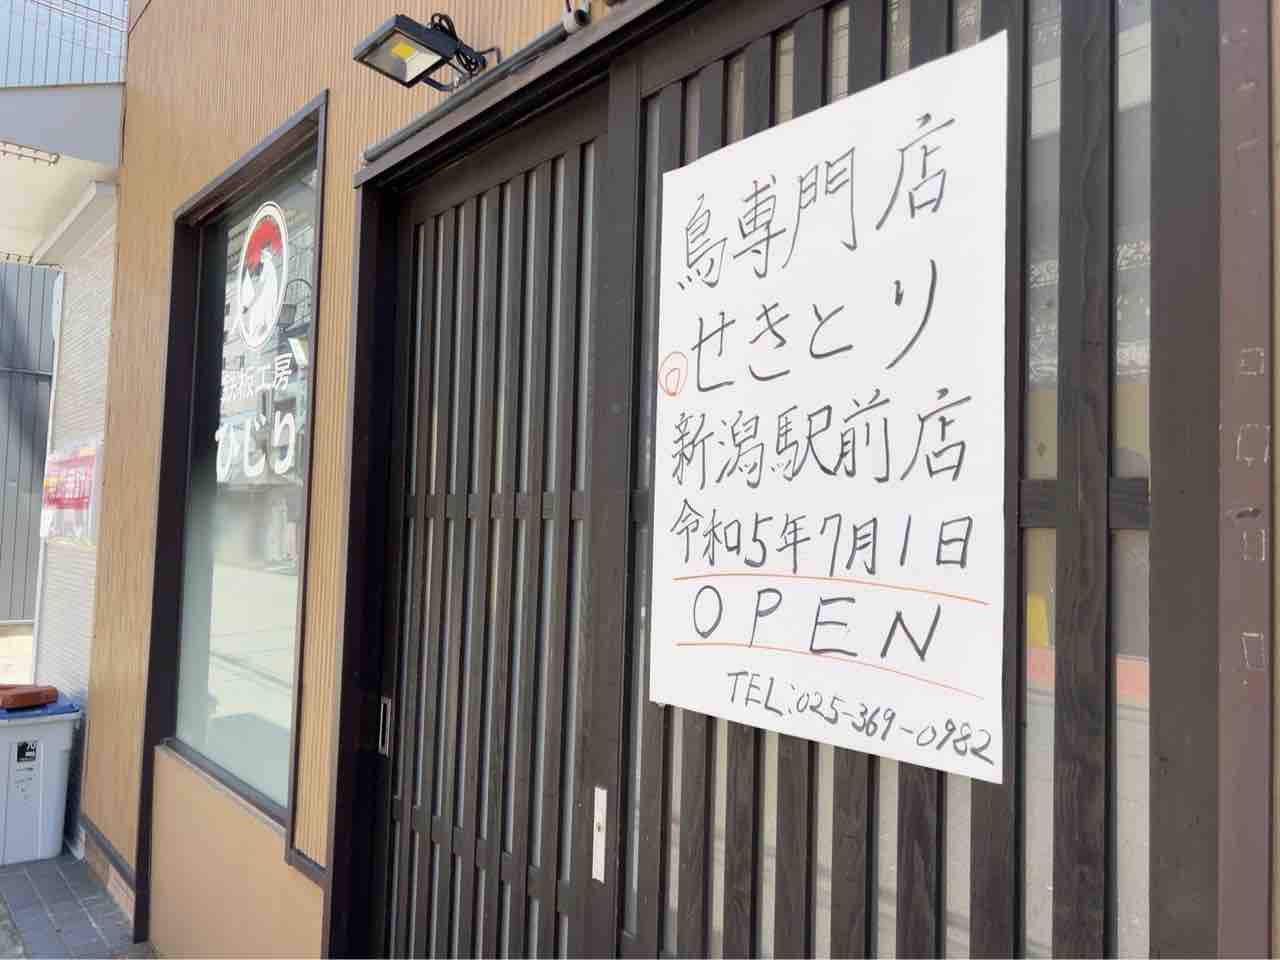 鉄板工房
ひじり
鳥専門店
せきとり
新潟駅前店
令和5年7月1日
OPEN
TEL:025-369-0982